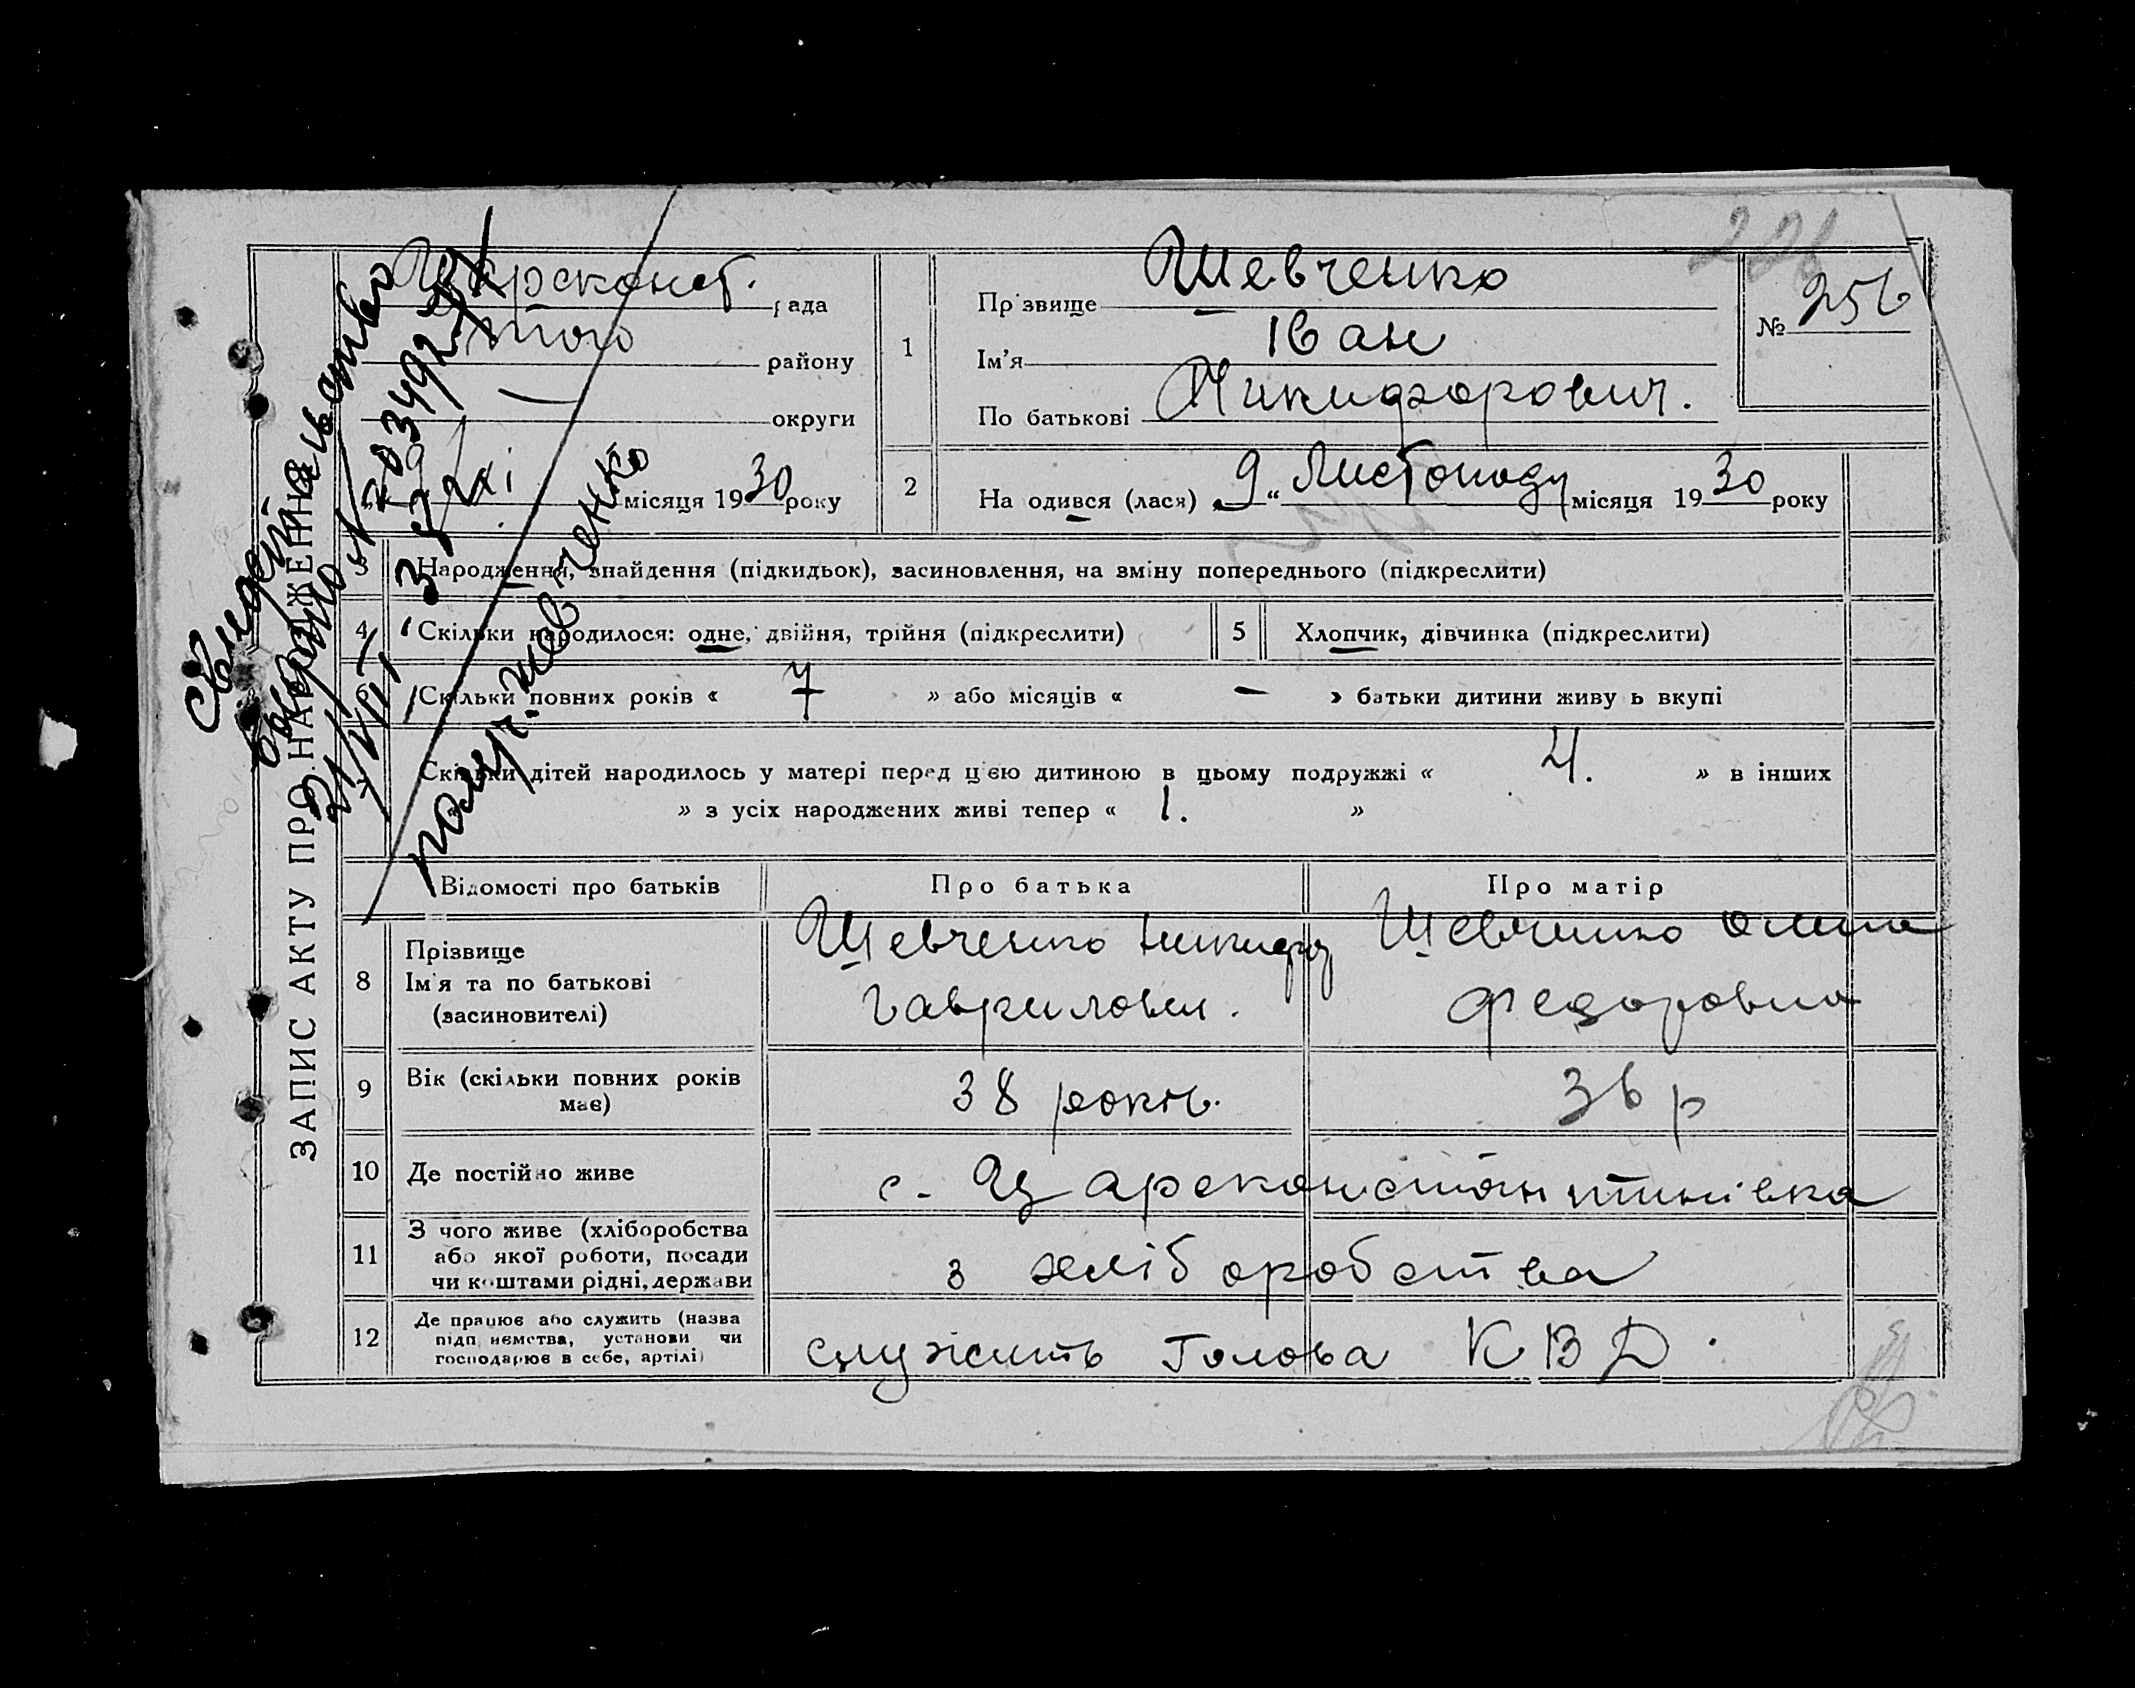 Царсконст. рада
того району
— округи
9/XI місяця 1930 року
ЗАПИС АКТУ ПРО НАРОДЖЕННЯ
1
Пр звище Шевченко
Ім'я Іван
По батькові Никифорович.
№ 256
2
На одився (лася) „9“ Листопаду місяця 1930 року
3 Народження, знайдення (підкидьок), засиновлення, на зміну попереднього (підкреслити)
4 Скільки народилося: одне, двійня, трійня (підкреслити)
5 Хлопчик, дівчинка (підкреслити)
6 Скільки повних років « 7 » або місяців « — » батьки дитини живу ь вкупі
Скільки дітей народилось у матері перед цією дитиною в цьому подружжі « 4. » в інших
» з усіх народжених живі тепер « 1. »
Відомості про батьків Про батька Про матір
8 Прізвище
Ім'я та по батькові
(засиновителі)
Шевченко Никифор
Гаврилович.
Шевченко
Федоровна
9 Вік (скільки повних років
має)
38 років.
36 р
10 Де постійно живе
с. Царсконстантинівка
11 З чого живе (хліборобства
або якої роботи, посади
чи коштами рідні, держави
з хліборобства
12 Де працює або служить (назва
підп иємства, установи чи
господарює в себе, артілі)
служить Голова КВД.